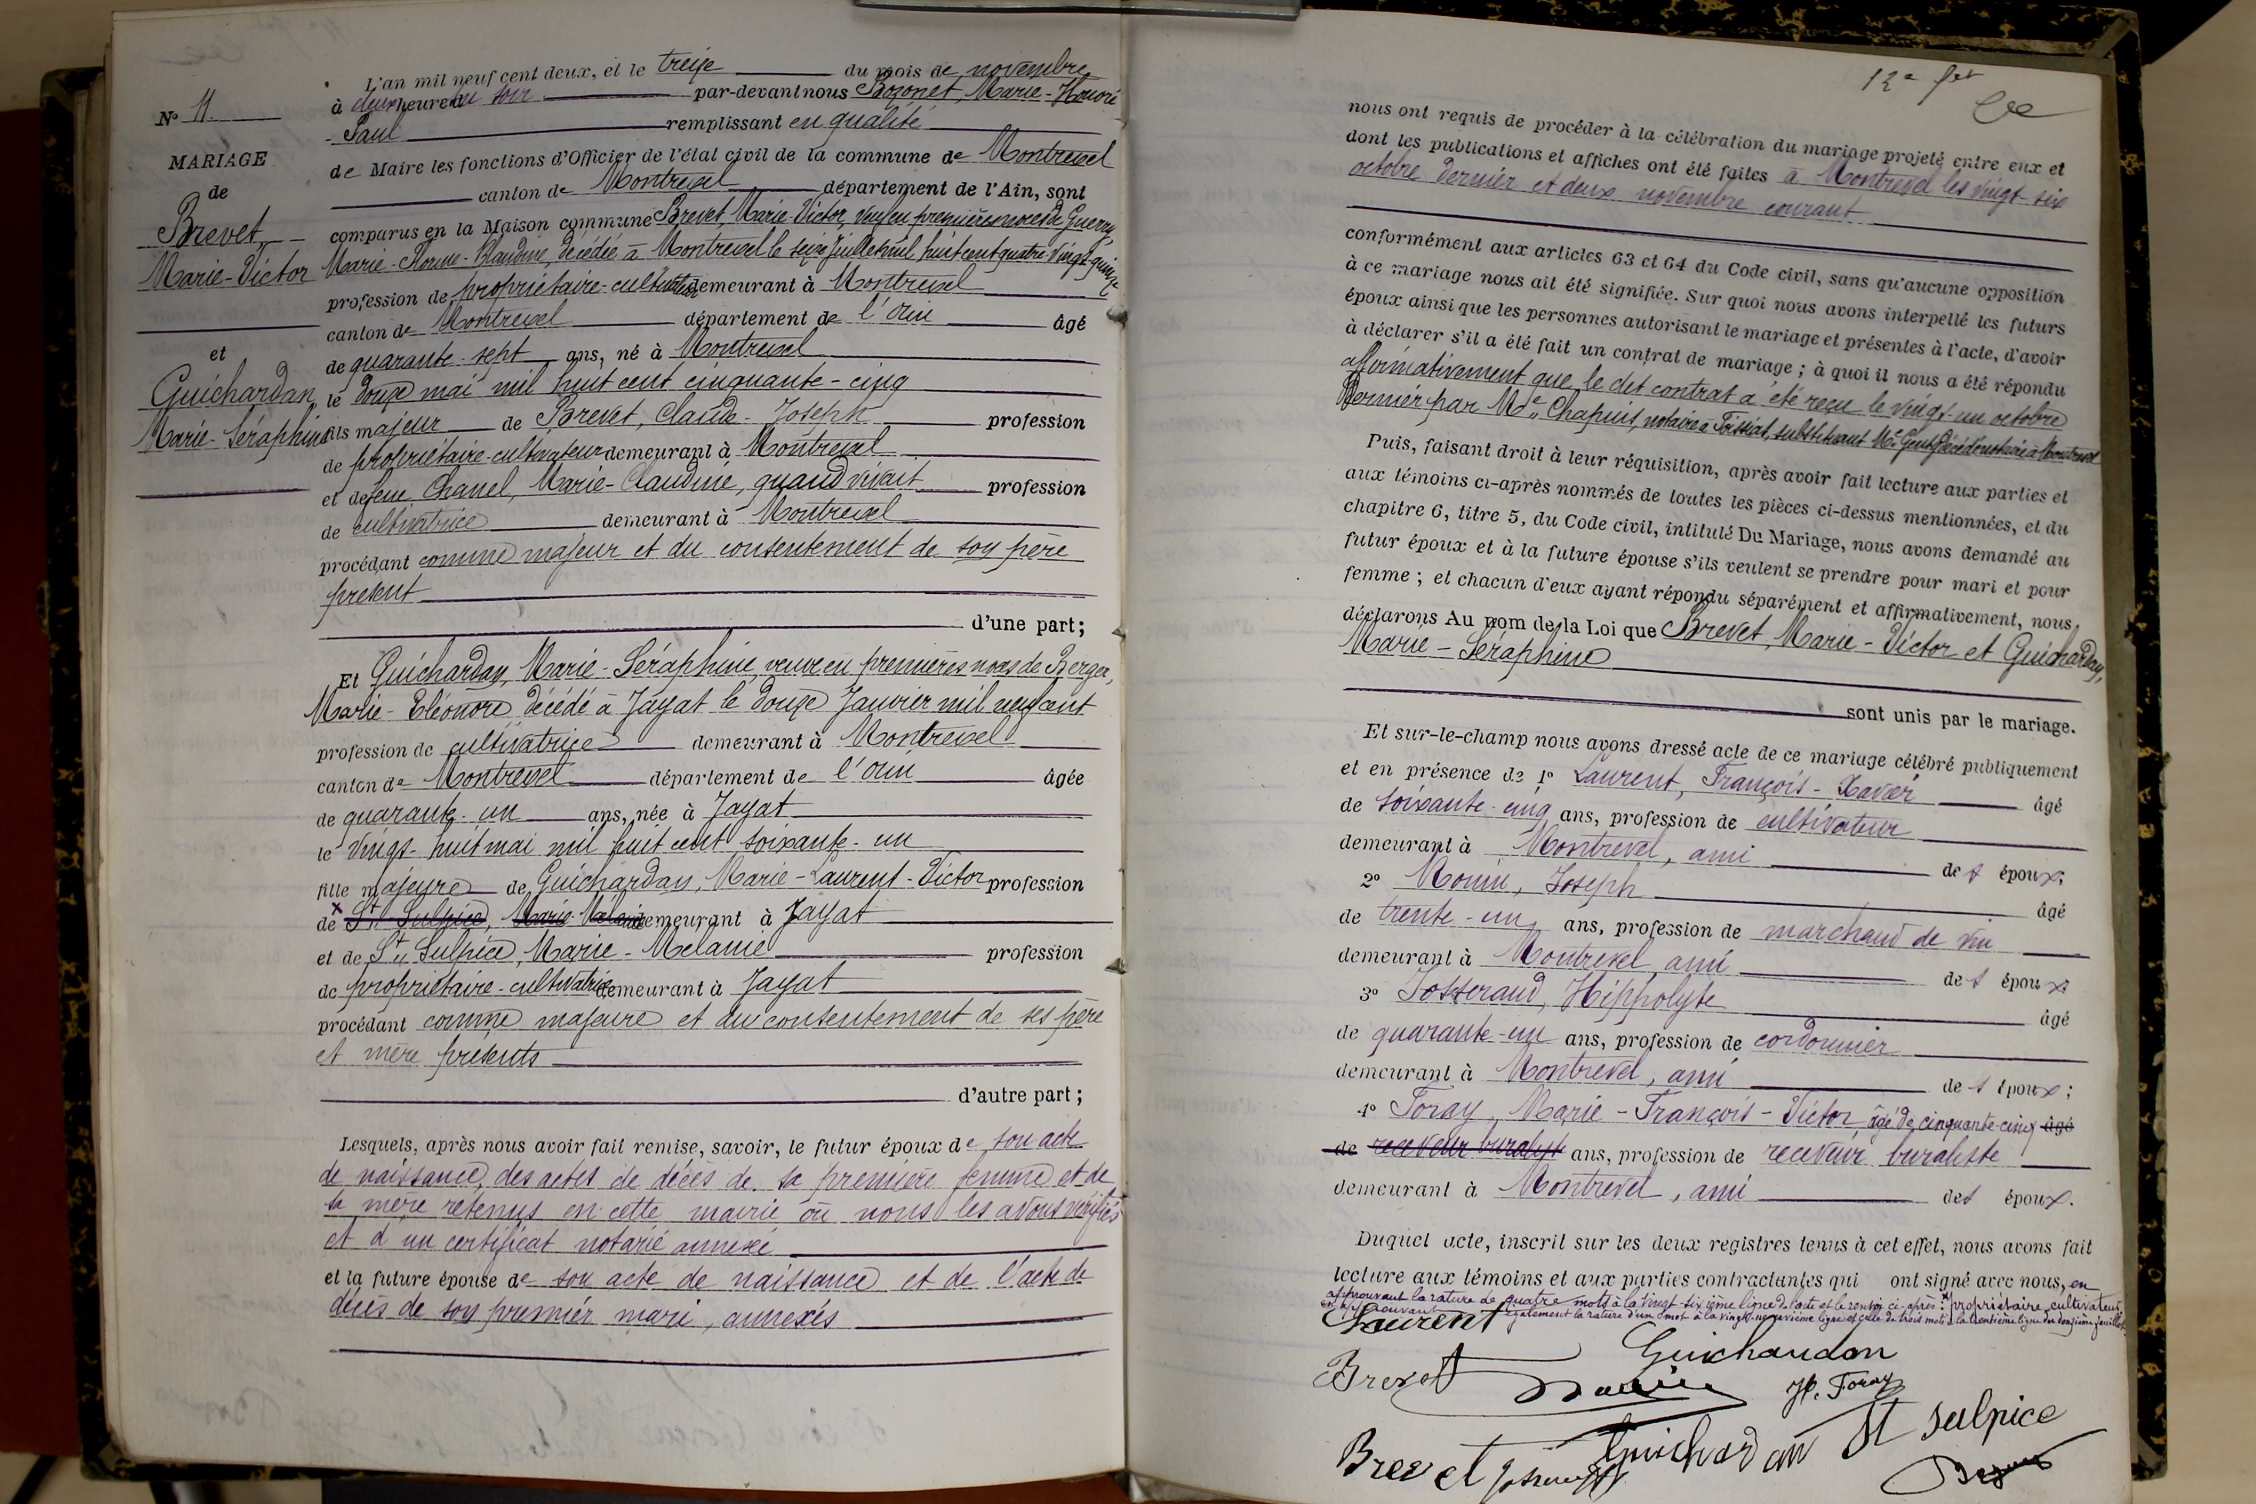 N° 11.
MARIAGE
de
Brevet
Marie-Victor
et
Guichardan
Marie-Séraphine
L'an mil neuf cent deux, et le treize du mois de novembre
à deux heures du soir par-devant nous Bozonet, Marie-Honoré
Paul remplissant en qualité
de Maire les fonctions d'Officier de l'état civil de la commune de Montrevel
canton de Montrevel département de l'Ain, sont
comparus en la Maison commune Brevet, Marie-Victor, veuf en premières noces de Guerry,
Marie-Claudine, décédée à Montrevel le seize Juillet mil huit cent quatre-vingt-quinze
profession de propriétaire-cultivateur demeurant à Montrevel
canton de Montrevel département de l'Ain âgé
de quarante-sept ans, né à Montrevel
le douze mai mil huit cent cinquante-cinq
fils majeur de Brevet, Claude-Joseph profession
de propriétaire-cultivateur demeurant à Montrevel
et de feue Chanel, Marie-Claudine, quand vivait profession
de cultivatrice demeurant à Montrevel
procédant comme majeur et du consentement de son père
présent
d'une part;
Et Guichardan, Marie-Séraphine, veuve en premières noces de Berger,
Marie-Eléonore décédé à Jayat le douze Janvier mil neuf cent
profession de cultivatrice demeurant à Montrevel
canton de Montrevel département de l'Ain âgée
de quarante-un ans, née à Jayat
le vingt-huit mai mil huit cent soixante-un
fille majeure de Guichardan, Marie-Laurent-Victor profession
de x St Sulpice, Marie-Mélanie demeurant à Jayat
et de St Sulpice, Marie-Mélanie profession
de propriétaire-cultivatrice demeurant à Jayat
procédant comme majeure et du consentement de ses père
et mère présents
d'autre part;
Lesquels, après nous avoir fait remise, savoir, le futur époux de son acte
de naissance, des actes de décès de sa première femme et de
sa mère retenus en cette mairie où nous les avons vérifiés
et d'un certificat notarié annexé
et la future épouse de son acte de naissance et de l'acte de
décès de son premier mari, annexés
12e fet
nous ont requis de procéder à la célébration du mariage projeté entre eux et
dont les publications et affiches ont été faites à Montrevel les vingt-six
octobre dernier et deux novembre courant
conformément aux articles 63 et 64 du Code civil, sans qu'aucune opposition
à ce mariage nous ait été signifiée. Sur quoi nous avons interpellé les futurs
époux ainsi que les personnes autorisant le mariage et présentes à l'acte, d'avoir
à déclarer s'il a été fait un contrat de mariage; à quoi il nous a été répondu
affirmativement que le dit contrat a été reçu le vingt-un octobre
dernier par Me Chapuis, notaire à Foissiat, substituant Me décédé notaire à Montrevel
Puis, faisant droit à leur réquisition, après avoir fait lecture aux parties et
aux témoins ci-après nommés de toutes les pièces ci-dessus mentionnées, et du
chapitre 6, titre 5, du Code civil, intitulé Du Mariage, nous avons demandé au
futur époux et à la future épouse s'ils veulent se prendre pour mari et pour
femme; et chacun d'eux ayant répondu séparément et affirmativement, nous
déclarons Au nom de la Loi que Brevet, Marie-Victor et Guichardan,
Marie-Séraphine
sont unis par le mariage.
Et sur-le-champ nous avons dressé acte de ce mariage célébré publiquement
et en présence de 1° Laurent, François-Xavier âgé
de soixante-cinq ans, profession de cultivateur
demeurant à Montrevel, ami des époux;
2° Monin, Joseph âgé
de trente-un ans, profession de marchand de vin
demeurant à Montrevel, ami des époux
3° Josserand, Hippolyte âgé
de quarante-un ans, profession de cordonnier
demeurant à Montrevel, ami des époux;
4° Foray, Marie-François-Victor âgé de cinquante-cinq âgé
de receveur buraliste ans, profession de receveur buraliste
demeurant à Montrevel, ami des époux.
Duquel acte, inscrit sur les deux registres tenus à cet effet, nous avons fait
lecture aux témoins et aux parties contractantes qui ont signé avec nous, en
approuvant la rature de quatre mots à la vingt-sixième ligne de l'acte et le renvoi ci-après: x propriétaire cultivateur,
en approuvant également la rature d'un mot à la vingt-neuvième ligne et celle de trois mots à la trentième ligne du douzième feuillet
Laurent
Guichardan
Brevet
H. Foray
Guichardan
St Sulpice
Brevet